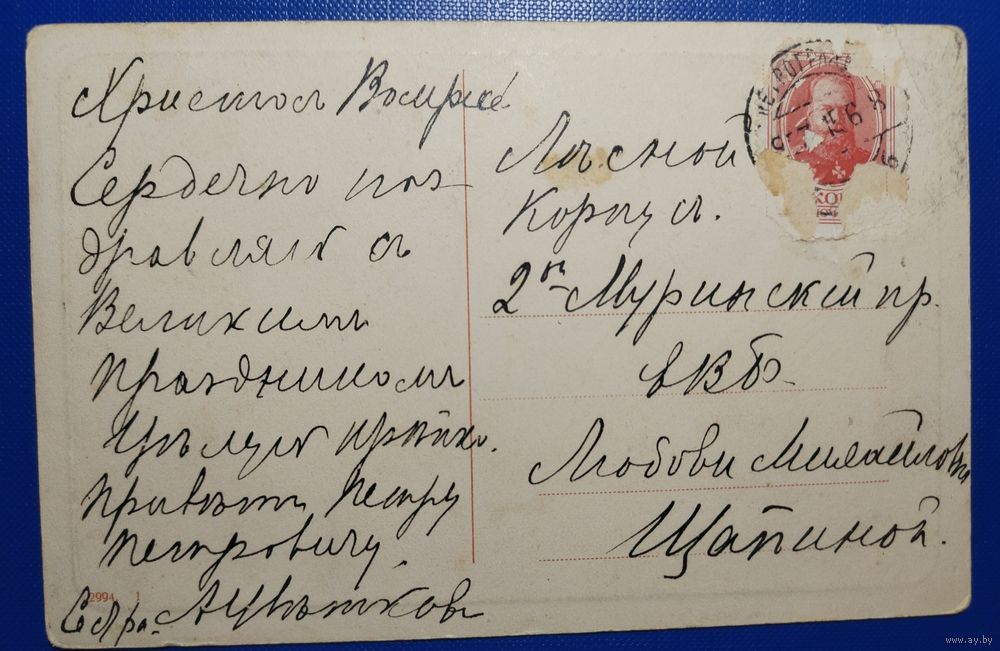 Христосъ Воскресе
Сердечно поз-
дравляю съ
Великимъ
праздникомъ
Цѣлую крѣпко.
Привѣтъ Петру
Петровичу.
А Цвѣтковъ
2994 1
Лѣсной
Корпусъ.
2й Муринскій пр.
Любови Михайловнѣ
Щапиной.
КОП
www.ay.by